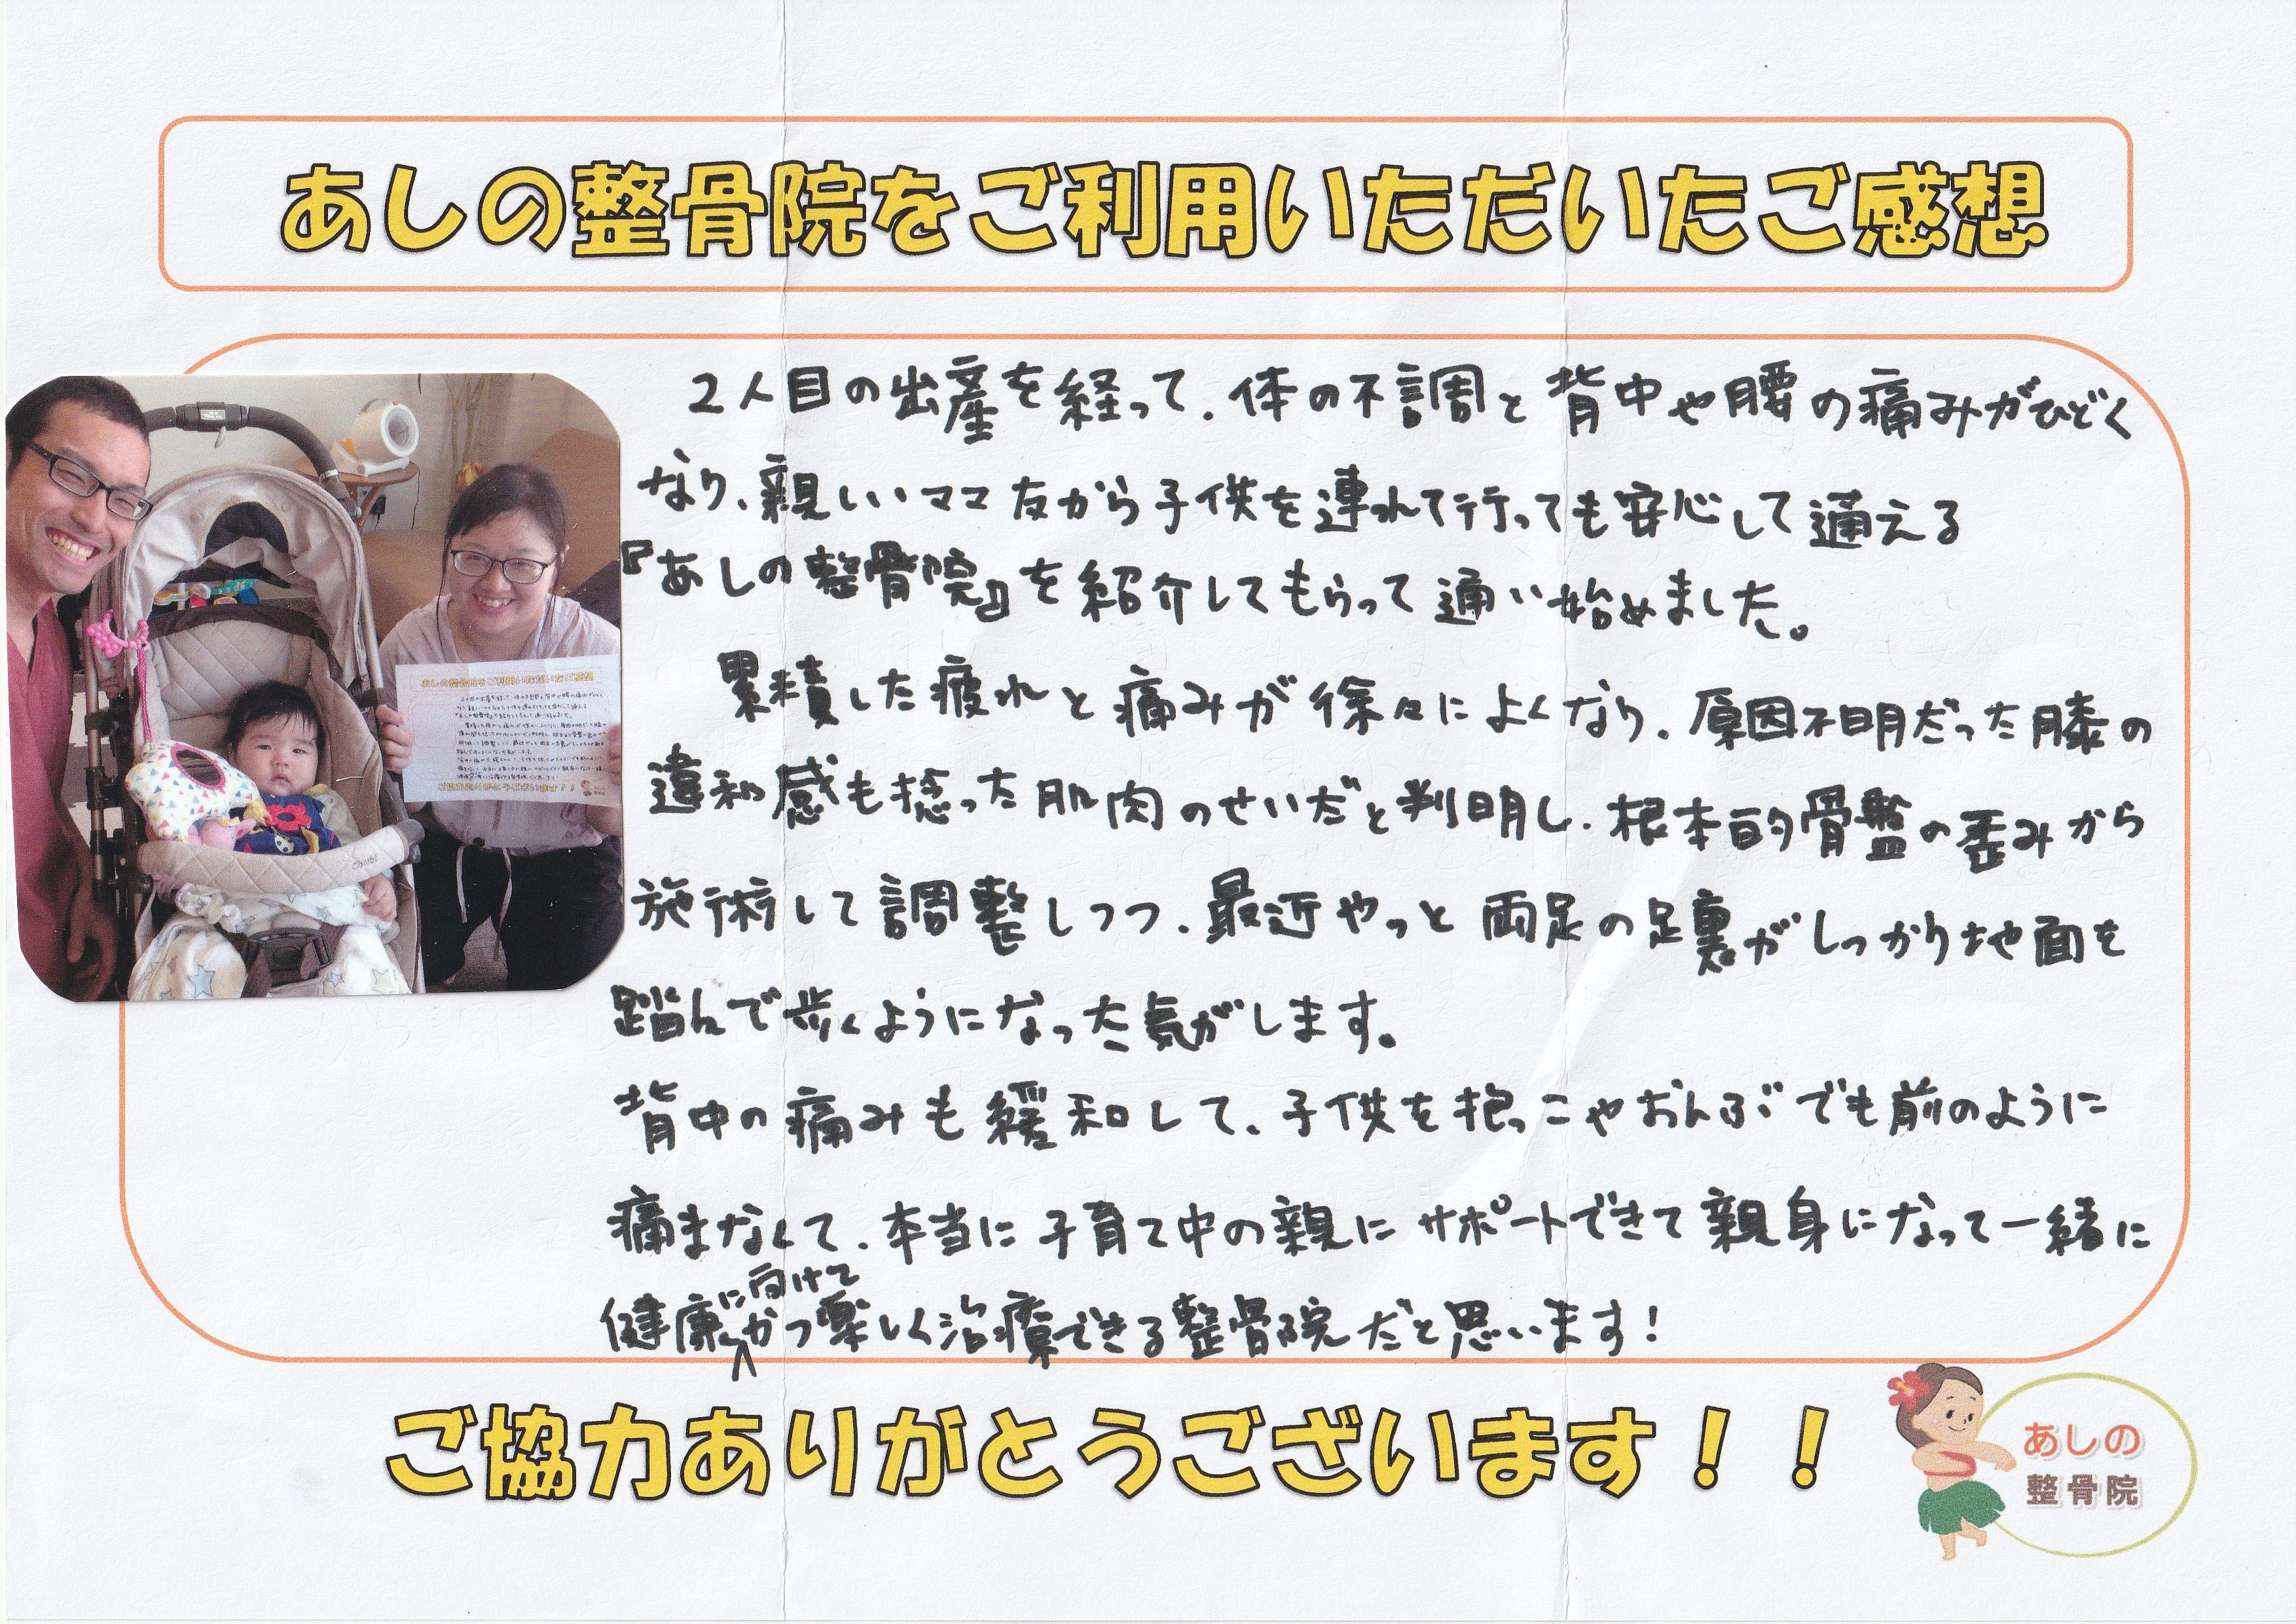 あしの整骨院をご利用いただいたご感想
2人目の出産を経って、体の不調と背中や腰の痛みがひどく
なり、親しいママ友から子供を連れて行っても安心して通える
『あしの整骨院』を紹介してもらって通い始めました。
累積した疲れと痛みが徐々によくなり、原因不明だった膝の
違和感も捻った肌肉のせいだと判明し、根本的骨盤の歪みから
施術して調整しつつ、最近やっと両足の足裏がしっかり地面を
踏んで歩くようになった気がします。
背中の痛みも緩和して、子供を抱っこやおんぶでも前のように
痛まなくて、本当に子育て中の親にサポートできて親身になって一緒に
健康に向けてかつ楽しく治療できる整骨院だと思います!
ご協力ありがとうございます！！
あしの
整骨院
Combi